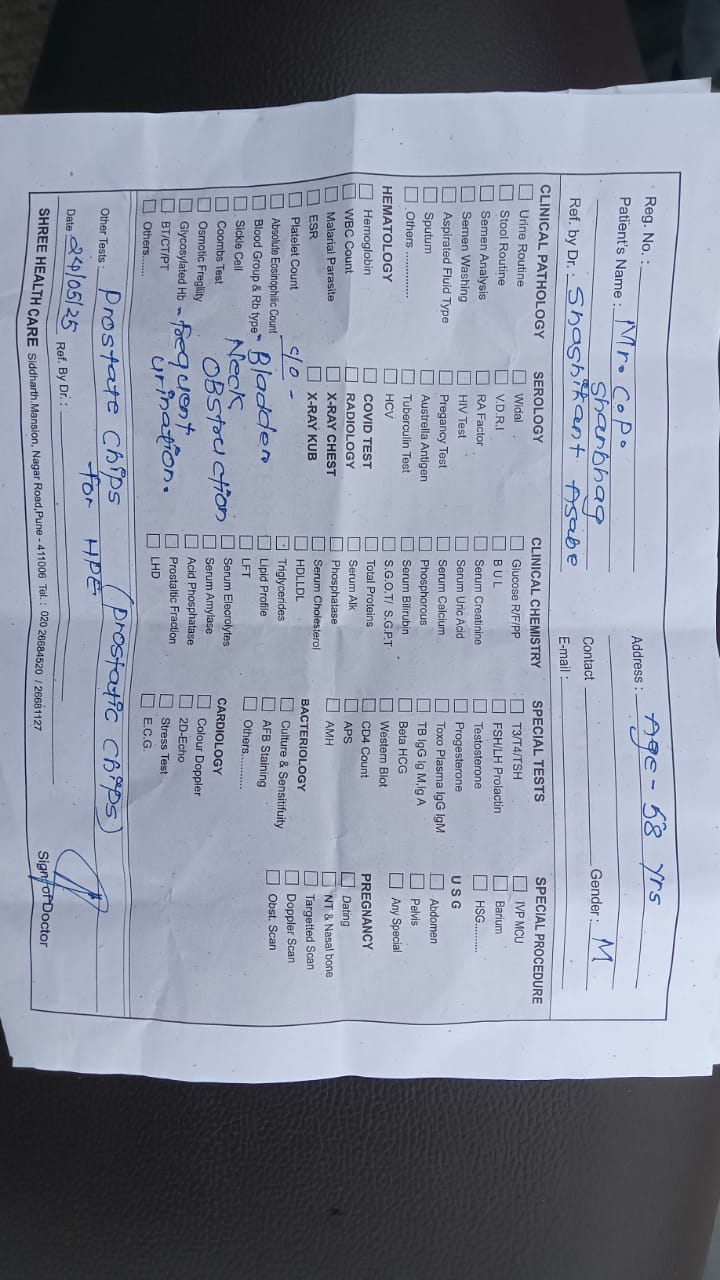 Reg. No. :
Address : Age - 58 yrs
Patient's Name : Mr. C.P. Shanbhag
Contact
Gender : M
Ref. by Dr. : Shashikant Asabe
E-mail :
CLINICAL PATHOLOGY
Urine Routine
Stool Routine
Semen Analysis
Semen Washing
Aspirated Fluid Type
Sputum
Others ..............
HEMATOLOGY
Hemoglobin
WBC Count
Malarial Parasite
ESR
Platelet Count
Absolute Eosinophilic Count
Blood Group & Rb type
Sickle Cell
Coombs Test
Osmotic Fregility
Glycosylated Hb
BT/CT/PT
Others......
SEROLOGY
Widal
V.D.R.I
RA Factor
HIV Test
Pregancy Test
Australia Antigen
Tuberculin Test
HCV
COVID TEST
RADIOLOGY
X-RAY CHEST
X-RAY KUB
c/o -
- Bladder
Neck
OBstruction
- freequent
urination.
CLINICAL CHEMISTRY
Glucose R/F/PP
B U L
Serum Creatinine
Serum Uric Acid
Serum Calcium
Phosphorous
Serum Bilirubin
S.G.O.T/ S.G.P.T
Total Proteins
Serum Alk
Phosphatase
Serum Cholesterol
HDLLDL
Triglycerides
Lipid Profile
LFT
Serum Elecrolytes
Serum Amylase
Acid Phosphatase
Prostaltic Fraction
LHD
SPECIAL TESTS
T3/T4/TSH
FSH/LH Prolactin
Testosterone
Progesterone
Toxo Plasma IgG IgM
TB IgG Ig M Ig A
Beta HCG
Western Blot
CD4 Count
APS
AMH
BACTERIOLOGY
Culture & Sensitifuity
AFB Staining
Others..........
CARDIOLOGY
Colour Doppler
2D-Echo
Stress Test
E.C.G.
SPECIAL PROCEDURE
IVP MCU
Barium
HSG.........
U S G
Abdomen
Pelvis
Any Special
PREGNANCY
Dating
NT. & Nasal bone
Targetted Scan
Doppler Scan
Obst. Scan
Other Tests : Prostate Chips (Prostatic Chips)
for HPE
Date 24/05/25 Ref. By Dr. :
Sign of Doctor
SHREE HEALTH CARE Siddharth.Mansion, Nagar Road,Pune - 411006 Tel. : 020 26684520 / 26681127